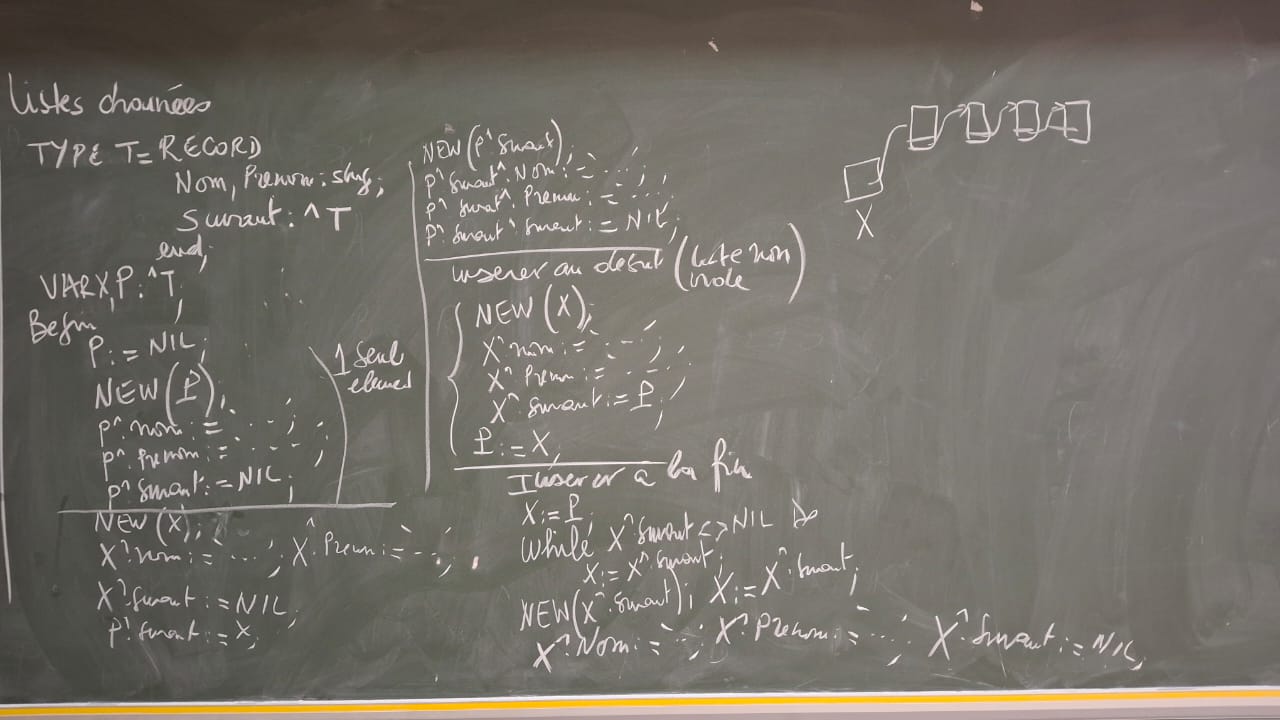 Listes chainées
TYPE T = RECORD
Nom, Prenom : string;
Suivant : ^T
end;
VAR X, P : ^T;
Begin
P := NIL;
NEW(P);
P^.nom := '...';
P^.Prenom := '...';
P^.Suivant := NIL;
1 seul
element
NEW(X);
X^.nom := '...'; X^.Prenom := '...';
X^.Suivant := NIL;
P^.Suivant := X;
NEW(P^.Suivant);
P^.Suivant^.Nom := '...';
P^.Suivant^.Prenom := '...';
P^.Suivant^.Suivant := NIL;
inserer au debut (liste non
vide)
NEW(X);
X^.nom := '...';
X^.Prenom := '...';
X^.Suivant := P;
P := X;
Inserer a la fin
X := P;
While X^.Suivant <> NIL Do
X := X^.Suivant;
NEW(X^.Suivant); X := X^.Suivant;
X^.Nom := '...'; X^.Prenom := '...'; X^.Suivant := NIL;
X